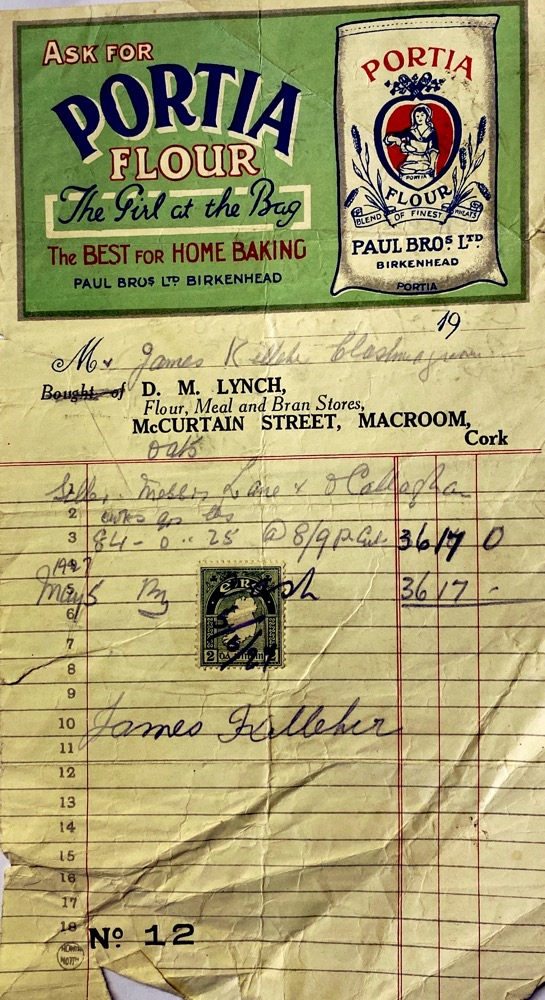 ASK FOR
PORTIA
FLOUR
The Girl at the Bag
The BEST FOR HOME BAKING
PAUL BROS LTD BIRKENHEAD
PORTIA
PORTIA
FLOUR
BLEND OF FINEST WHEATS
PAUL BROS. LTD
BIRKENHEAD
PORTIA
19
Mr James Kelleher
Bought of D. M. LYNCH,
Flour, Meal and Bran Stores,
McCURTAIN STREET, MACROOM,
Cork
Oats
Messrs Lane & O'Callaghan
2 cwts qrs lbs
3 84 - 0 .. 25 @ 8/9 p 36 17 0
1927
May 5 By Cash 36 17 -
6
ÉIRE
2 2
7
8
9
10 James Kelleher
11
12
13
14
15
16
17
18
No 12